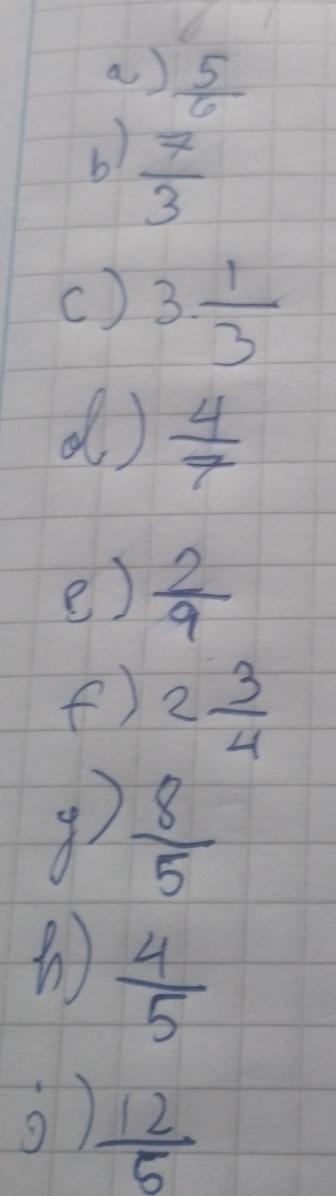 a) 5/6
b) 7/3
c) 3 1/3
d) 4/7
e) 2/9
f) 2 3/4
g) 8/5
h) 4/5
i) 12/5